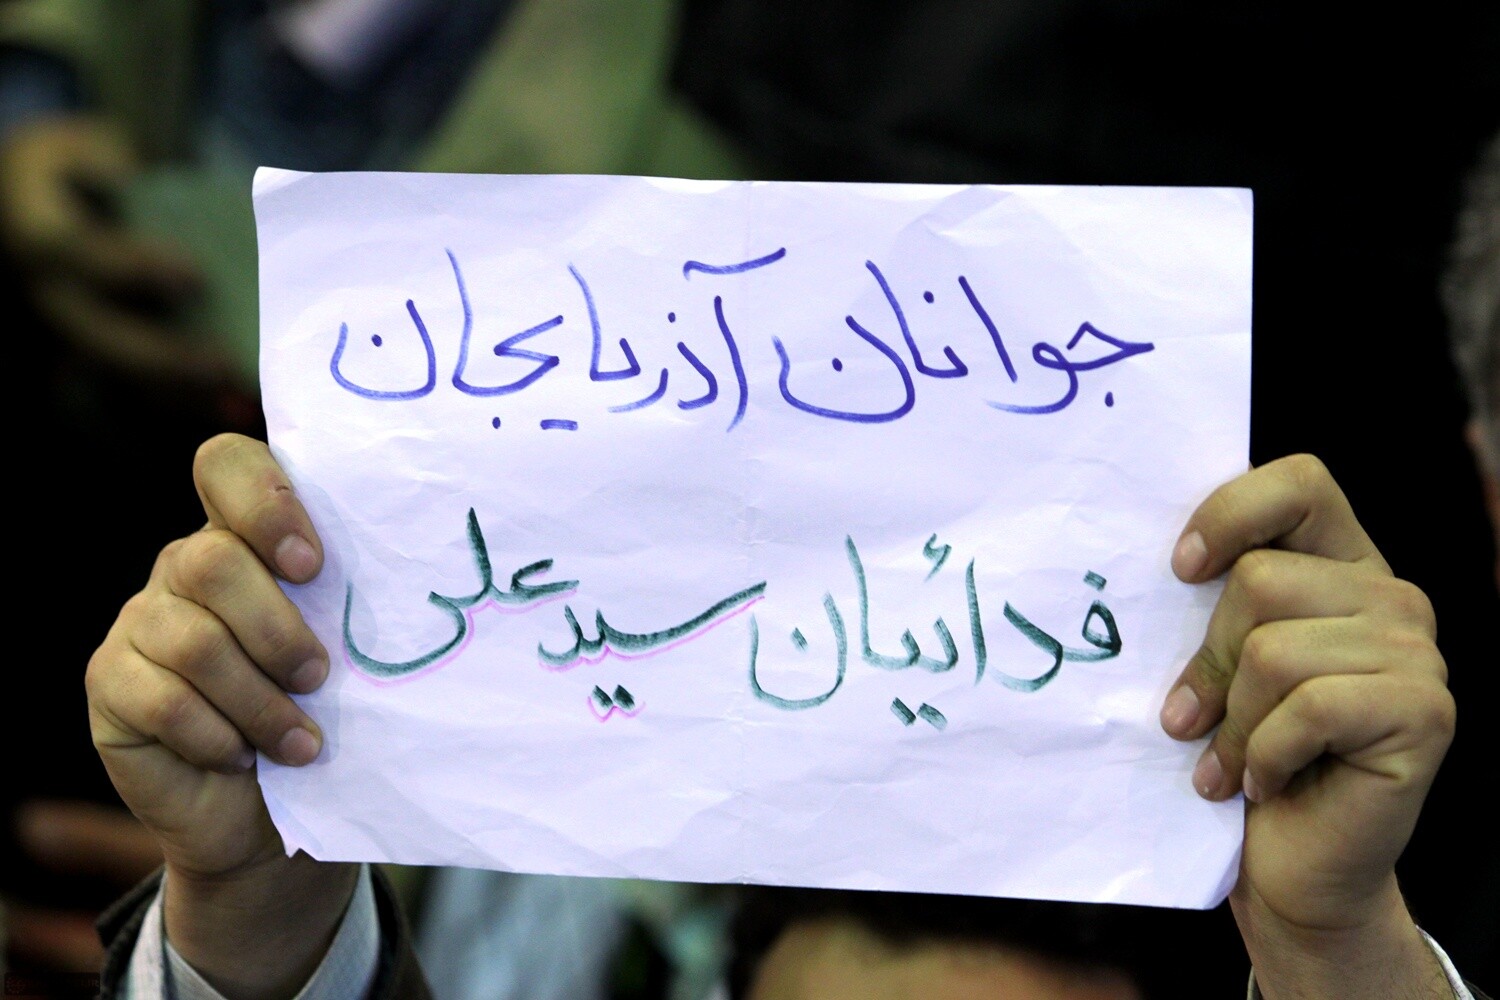 جوانان آذربایجان
فدائیان سید علی